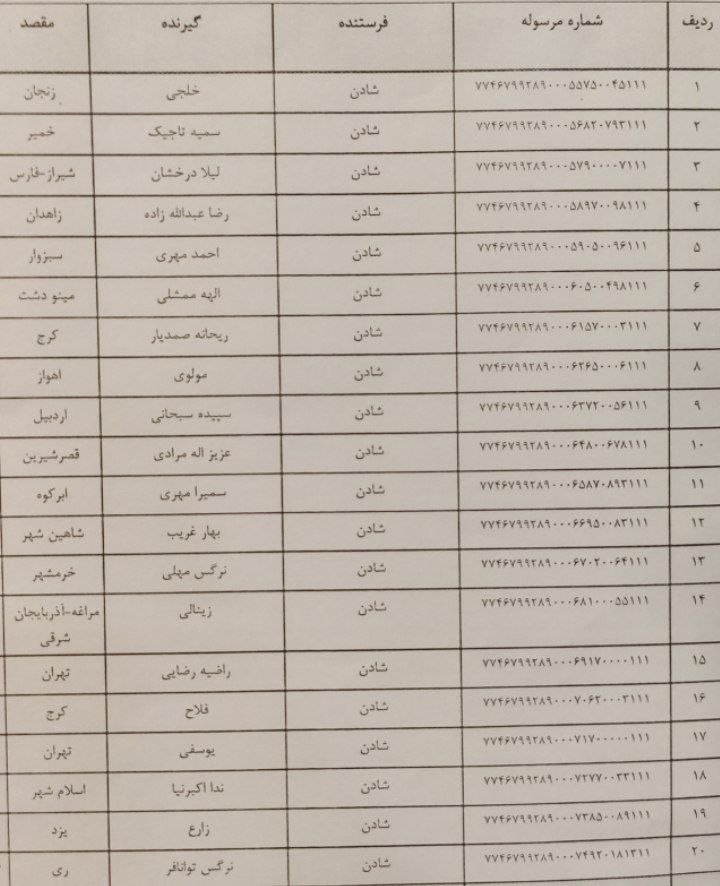 ردیف شماره مرسوله فرستنده گیرنده مقصد
۱ ۷۷۴۶۷۹۹۲۸۹۰۰۰۵۵۷۵۰۰۴۵۱۱۱ شادن خلجی زنجان
۲ ۷۷۴۶۷۹۹۲۸۹۰۰۰۵۶۸۲۰۷۹۳۱۱۱ شادن سمیه تاجیک خمیر
۳ ۷۷۴۶۷۹۹۲۸۹۰۰۰۵۷۹۰۰۰۰۷۱۱۱ شادن لیلا درخشان شیراز-فارس
۴ ۷۷۴۶۷۹۹۲۸۹۰۰۰۵۸۹۷۰۰۹۸۱۱۱ شادن رضا عبدالله زاده زاهدان
۵ ۷۷۴۶۷۹۹۲۸۹۰۰۰۵۹۰۵۰۰۹۶۱۱۱ شادن احمد مهری سبزوار
۶ ۷۷۴۶۷۹۹۲۸۹۰۰۰۶۰۵۰۰۴۹۸۱۱۱ شادن الهه ممشلی مینو دشت
۷ ۷۷۴۶۷۹۹۲۸۹۰۰۰۶۱۵۷۰۰۰۳۱۱۱ شادن ریحانه صمدیار کرج
۸ ۷۷۴۶۷۹۹۲۸۹۰۰۰۶۲۶۵۰۰۰۶۱۱۱ شادن مولوی اهواز
۹ ۷۷۴۶۷۹۹۲۸۹۰۰۰۶۳۷۲۰۰۵۶۱۱۱ شادن سپیده سبحانی اردبیل
۱۰ ۷۷۴۶۷۹۹۲۸۹۰۰۰۶۴۸۰۰۶۷۸۱۱۱ شادن عزیز اله مرادی قصرشیرین
۱۱ ۷۷۴۶۷۹۹۲۸۹۰۰۰۶۵۸۷۰۸۹۳۱۱۱ شادن سمیرا مهری ابرکوه
۱۲ ۷۷۴۶۷۹۹۲۸۹۰۰۰۶۶۹۵۰۰۸۳۱۱۱ شادن بهار غریب شاهین شهر
۱۳ ۷۷۴۶۷۹۹۲۸۹۰۰۰۶۷۰۲۰۰۶۴۱۱۱ شادن نرگس مهلی خرمشهر
۱۴ ۷۷۴۶۷۹۹۲۸۹۰۰۰۶۸۱۰۰۰۵۵۱۱۱ شادن زینالی مراغه-آذربایجان
شرقی
۱۵ ۷۷۴۶۷۹۹۲۸۹۰۰۰۶۹۱۷۰۰۰۰۱۱۱ شادن راضیه رضایی تهران
۱۶ ۷۷۴۶۷۹۹۲۸۹۰۰۰۷۰۶۲۰۰۰۳۱۱۱ شادن فلاح کرج
۱۷ ۷۷۴۶۷۹۹۲۸۹۰۰۰۷۱۷۰۰۰۰۰۱۱۱ شادن یوسفی تهران
۱۸ ۷۷۴۶۷۹۹۲۸۹۰۰۰۷۲۷۷۰۰۳۳۱۱۱ شادن ندا اکبرنیا اسلام شهر
۱۹ ۷۷۴۶۷۹۹۲۸۹۰۰۰۷۳۸۵۰۰۸۹۱۱۱ شادن زارع یزد
۲۰ ۷۷۴۶۷۹۹۲۸۹۰۰۰۷۴۹۲۰۱۸۱۳۱۱ شادن نرگس توانافر ری